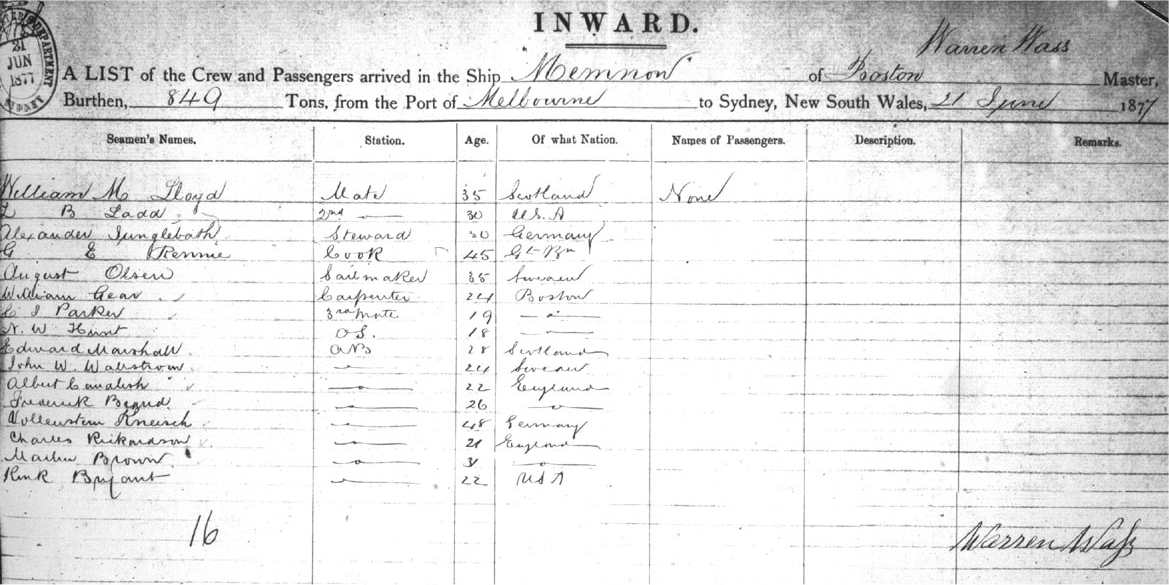 21
JUN
1877
SYDNEY
INWARD.
Warren Wass
A LIST of the Crew and Passengers arrived in the Ship Memnon of Boston Master,
Burthen, 849 Tons, from the Port of Melbourne to Sydney, New South Wales, 21 June 1877
Seamen's Names. Station. Age. Of what Nation. Names of Passengers. Description. Remarks.
William M Lloyd Mate 35 Scotland None
B Ladd 2nd — 30 U.S.A
Alexander Steward 30 Germany
G E Rennie Cook 45 Gt Bn
August Olsen Sailmaker 35 Sweden
William Gear Carpenter 24 Boston
J Parker 3rd Mate 19 — " —
N. W. Hunt O.S. 18 — " —
Edward Marshall AB 28 Scotland
John W. Wallstrom — " — 24 Sweden
Albert — " — 22 England
Frederick — " — 26 — " —
Kneisch — " — 48 Germany
Charles Rickardson — " — 21 England
Martin Brown — " — 31 — " —
Bryant — " — 22 USA
16
Warren Wass